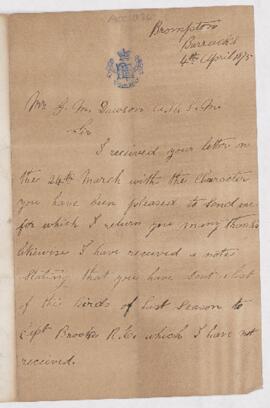 Brompton
Barracks
4th April 1875
Mr J. M. Dawson
Sir
I received your letter on
the 24th March with the Character
you have been pleased to send me
for which I return you many thanks
likewise I have received a note
stating that you have sent a list
of the birds of last season to
Capt Brooke R.E. which I have not
received.